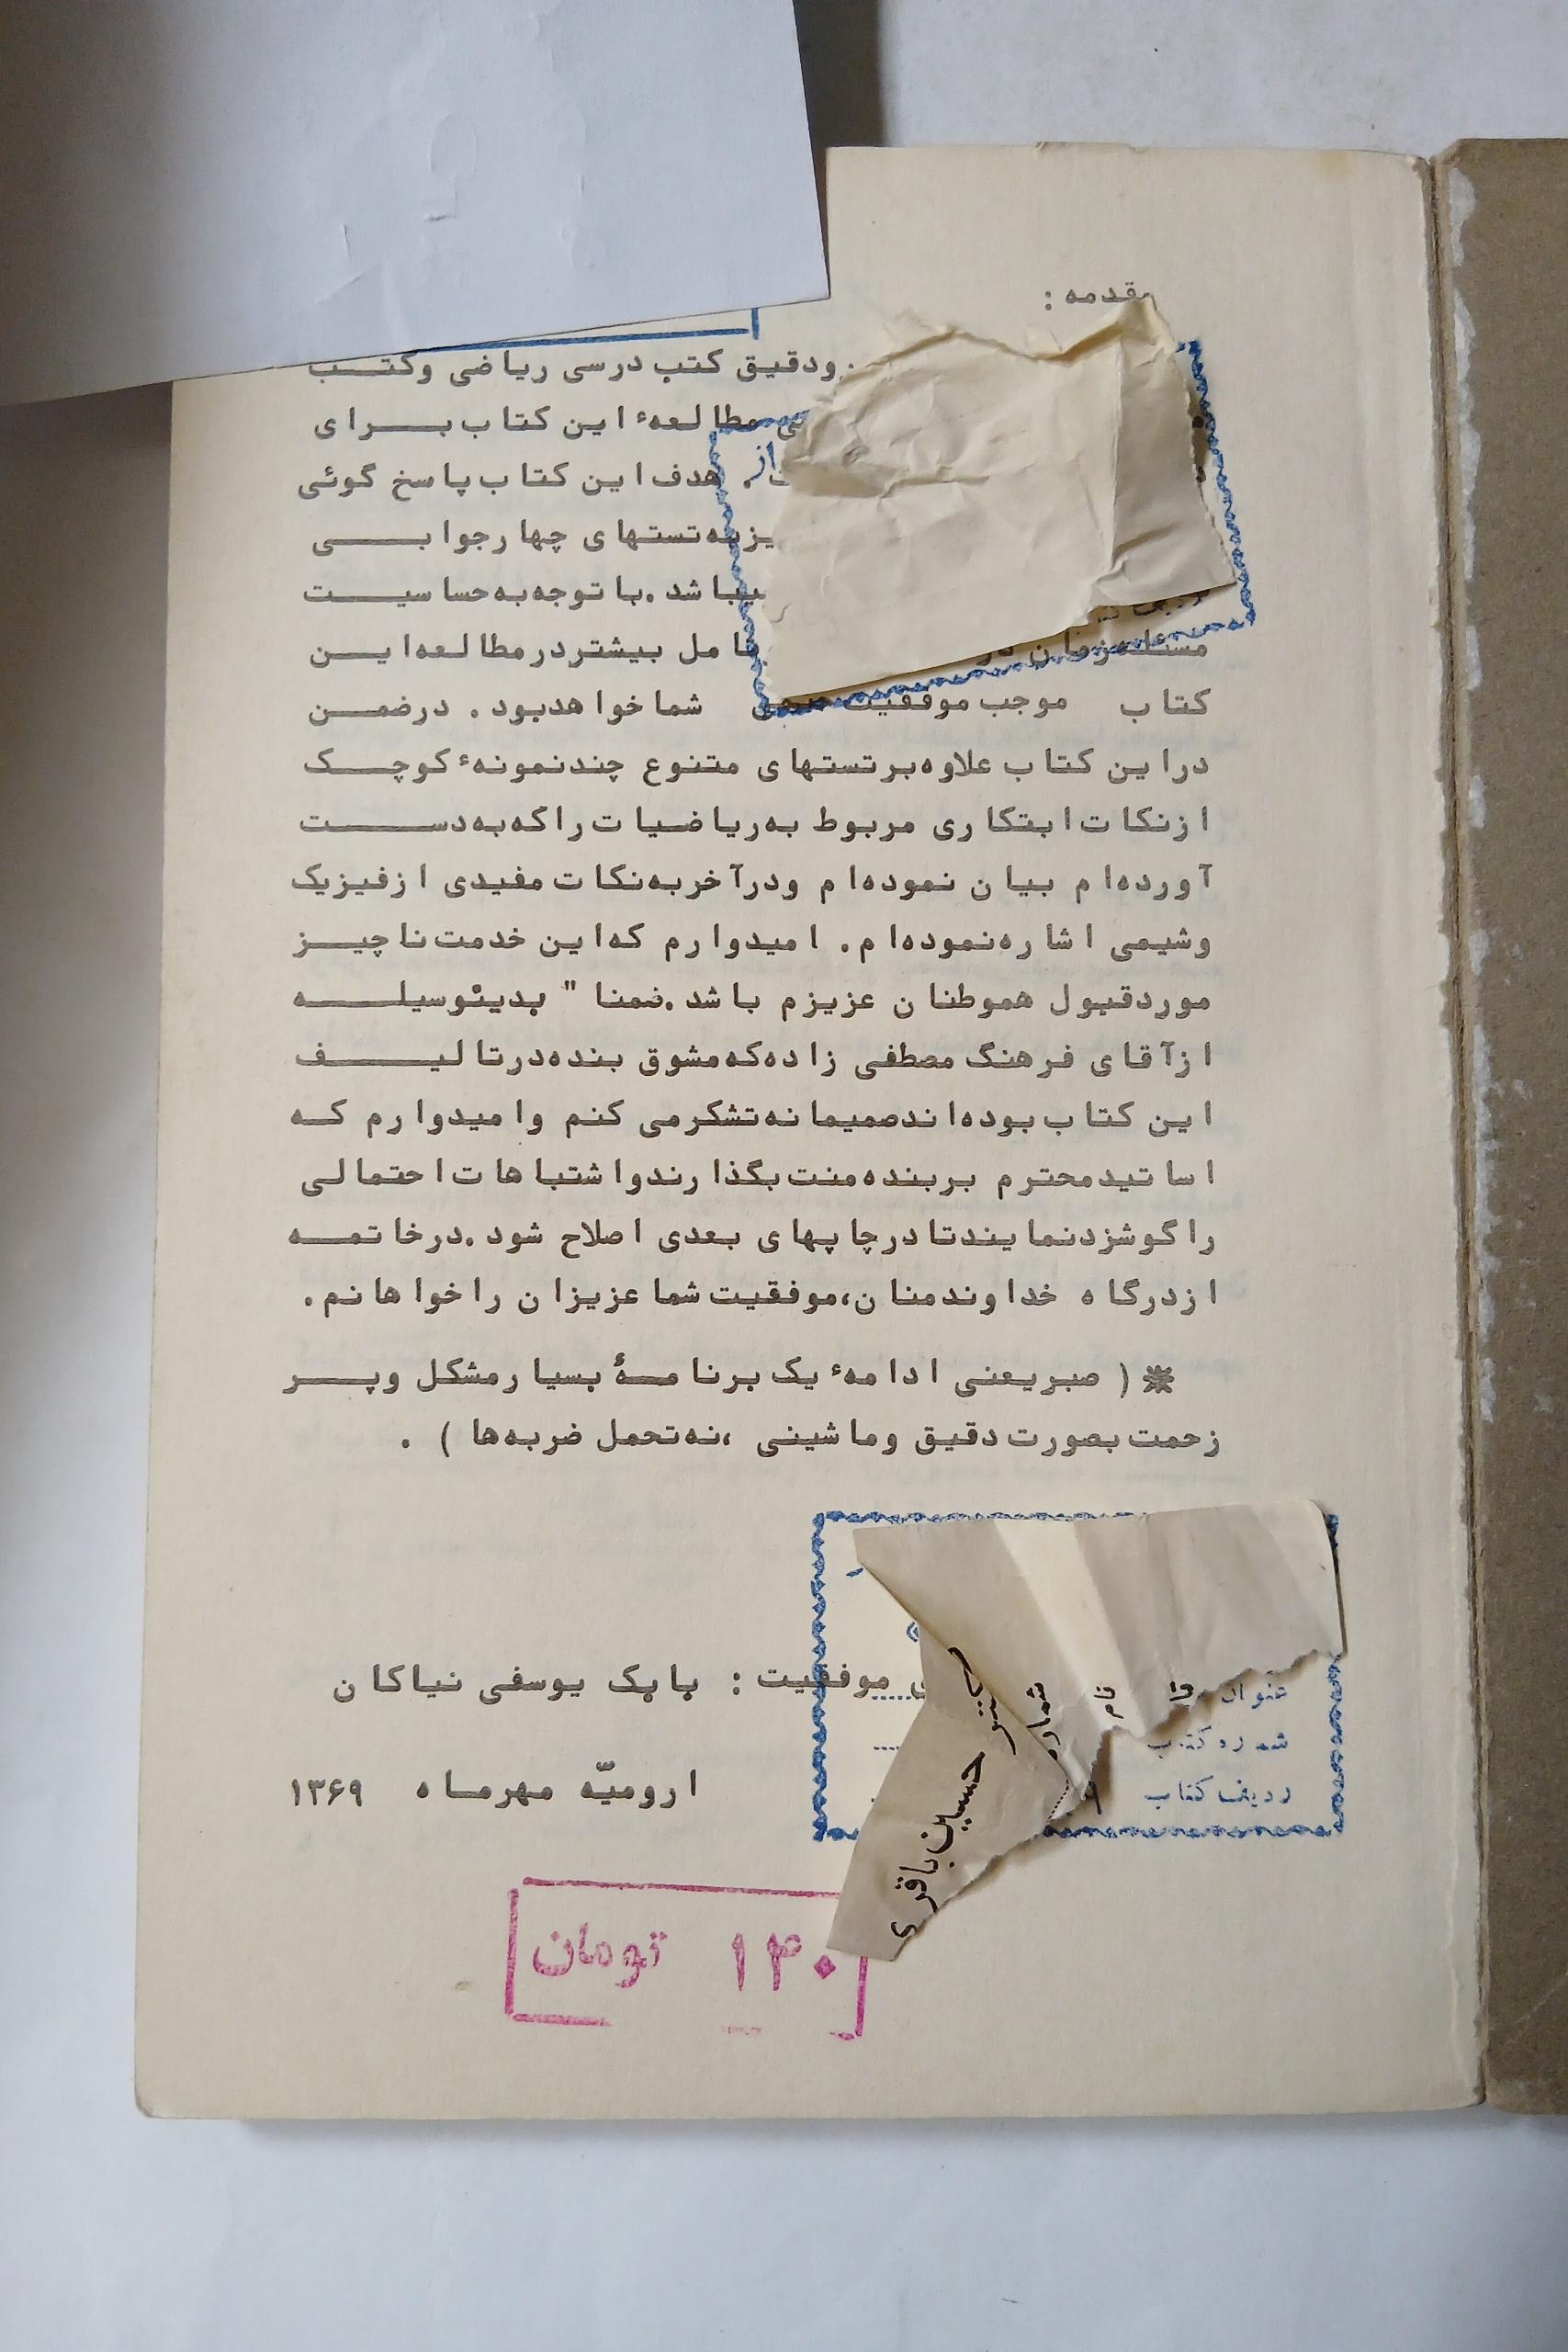 قدمه :
ودقیق کتب درسی ریاضی وکتب
مطالعهٔ این کتاب برای
. هدف این کتاب پاسخ گوئی
از
تستهای چهارجوابی
باشد .با توجه به حساسیت
مسئله زمان
مل بیشتر در مطالعه این
کتاب موجب موفقیت شما خواهد بود . در ضمن
در این کتاب علاوه بر تستهای متنوع چند نمونهٔ کوچک
از نکات ابتکاری مربوط به ریاضیات را که به دست
آورده ام بیان نموده ام و در آخر به نکات مفیدی از فیزیک
وشیمی اشاره نموده ام . امیدوارم که این خدمت ناچیز
مورد قبول هموطنان عزیزم باشد .ضمنا " بدینوسیله
از آقای فرهنگ مصطفی زاده که مشوق بنده در تالیف
این کتاب بوده اند صمیمانه تشکر می کنم وامیدوارم که
اساتید محترم بر بنده منت بگذارند واشتباهات احتمالی
را گوشزد نمایند تا در چاپهای بعدی اصلاح شود .در خاتمه
از درگاه خداوند منان ،موفقیت شما عزیزان را خواهانم .
( صبر یعنی ادامهٔ یک برنامهٔ بسیار مشکل وپر
زحمت بصورت دقیق وماشینی ،نه تحمل ضربه ها ) .
موفقیت : بابک یوسفی نیاکان
عنوان
شماره کتاب
ردیف کتاب
نام
شماره
حسین باقری
ارومیّه مهرماه ۱۳۶۹
۱۳۰ تومان